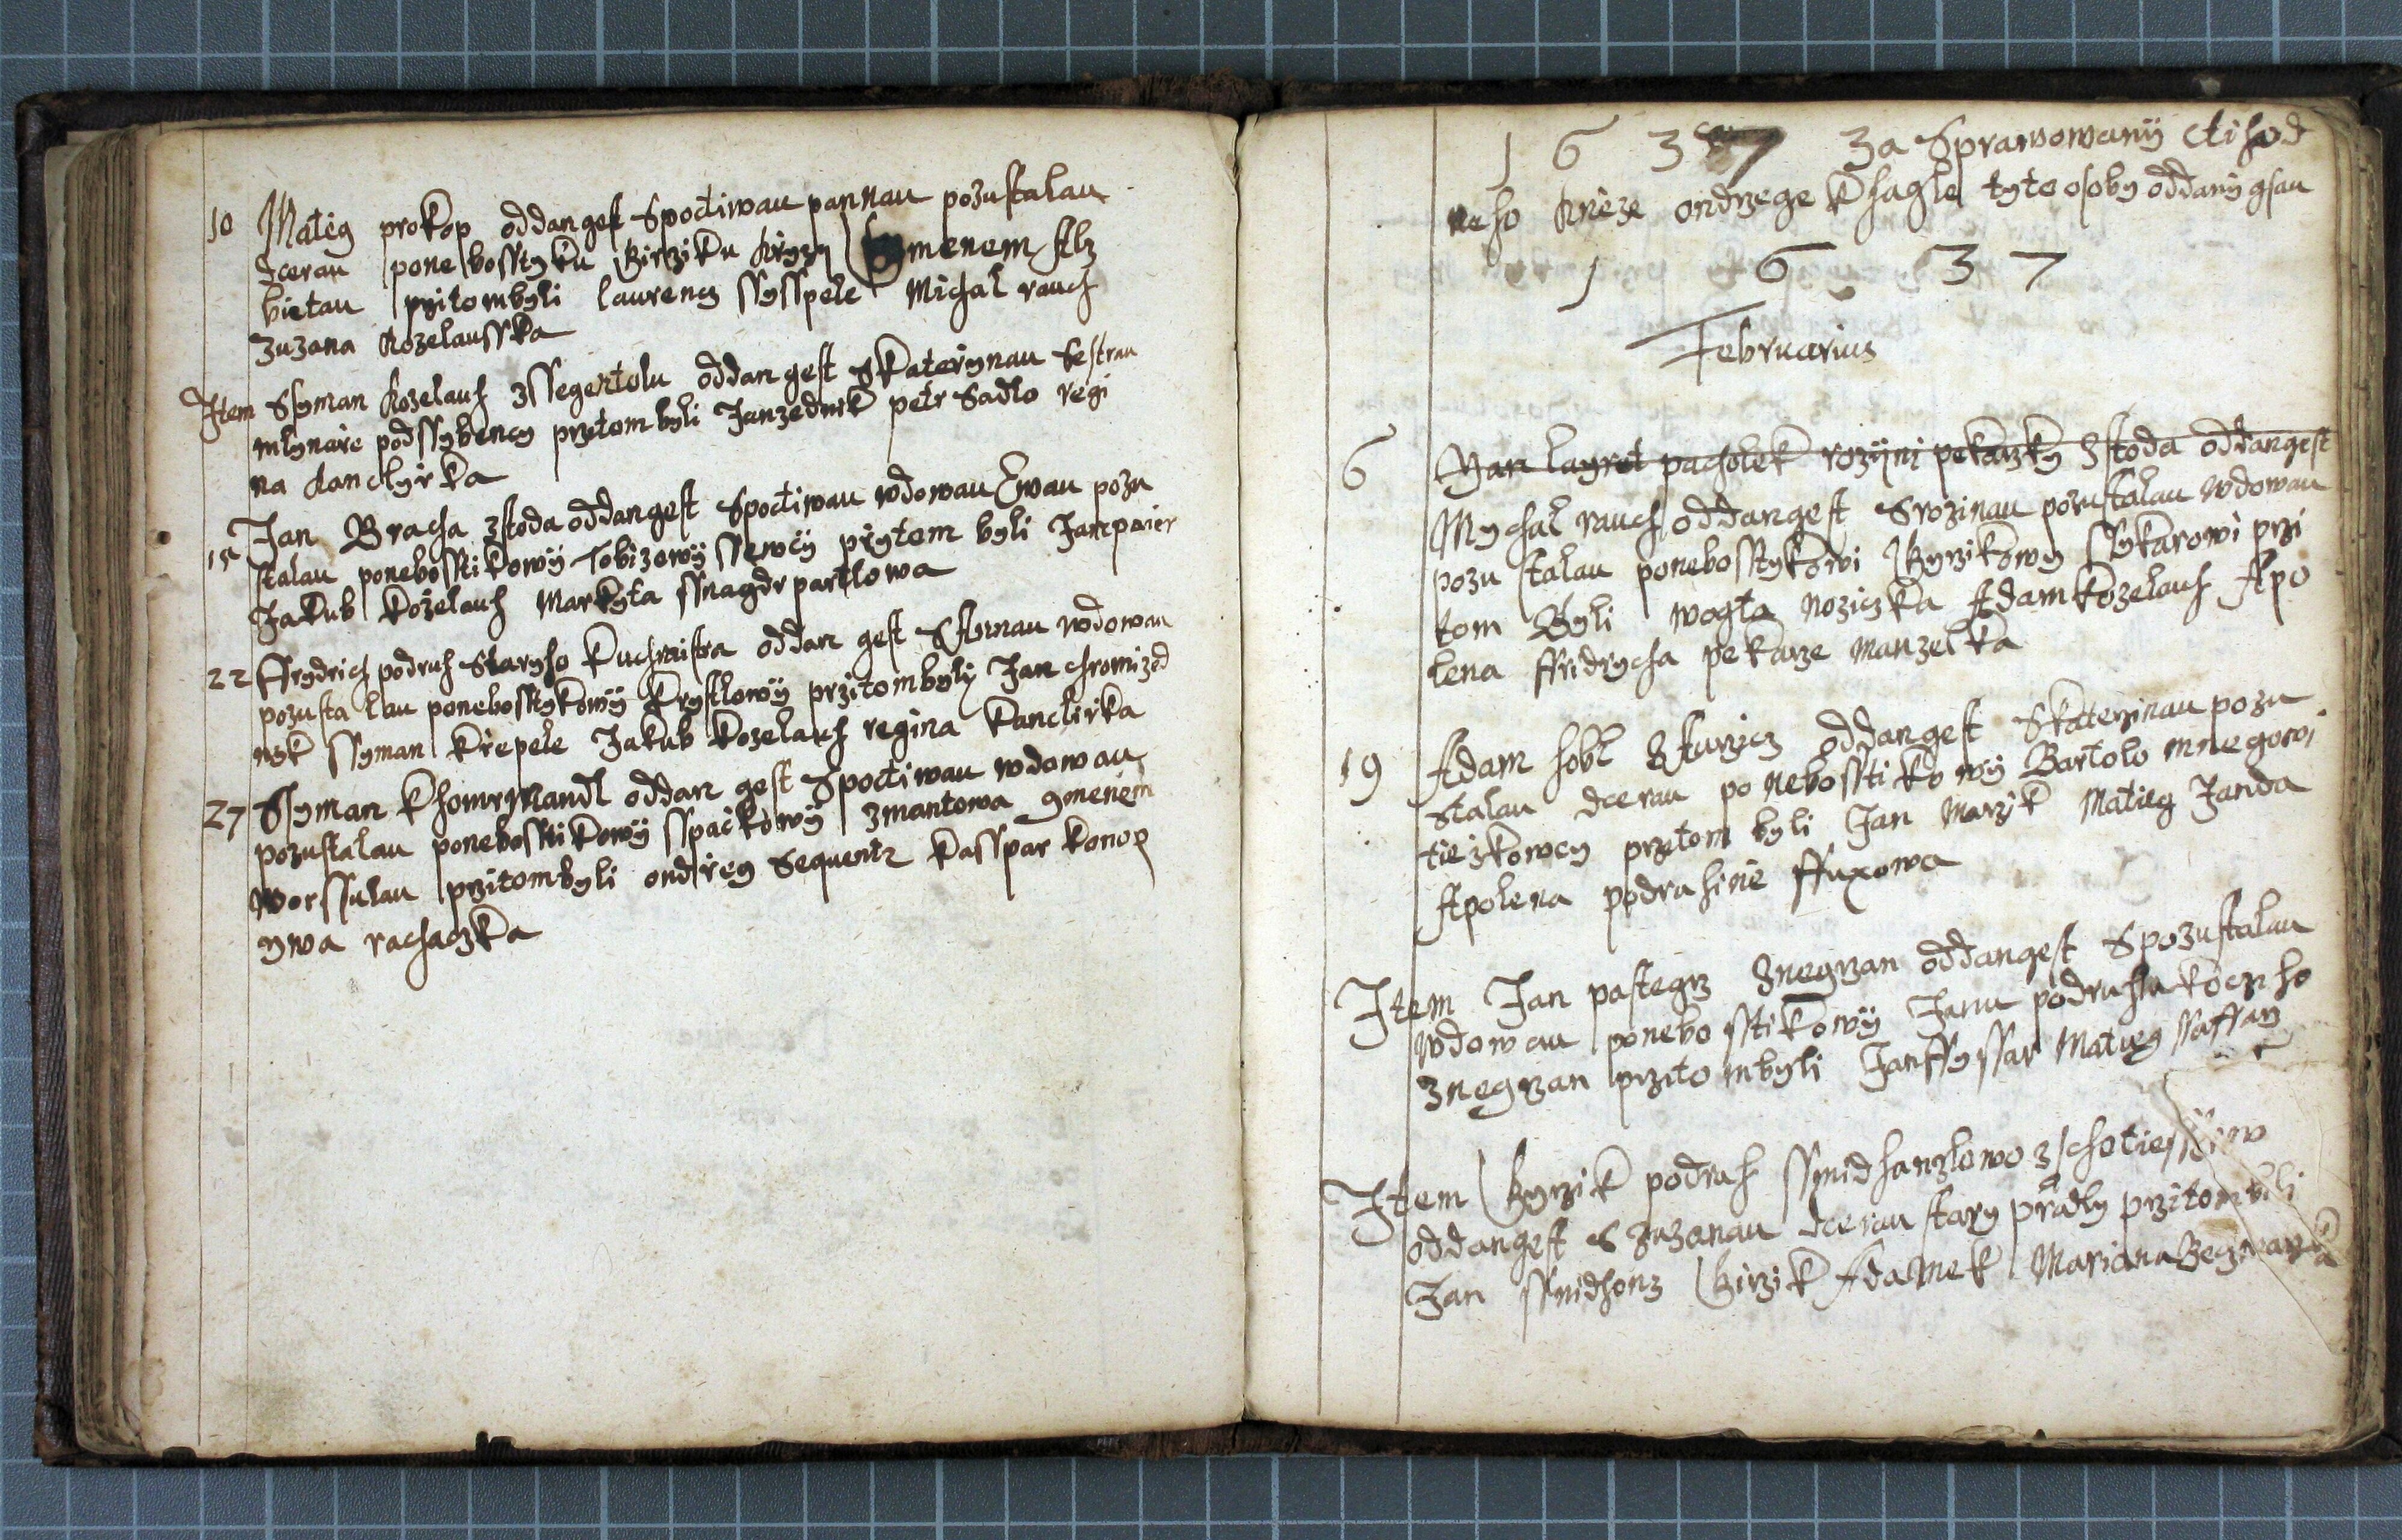 10 Matieg prokop oddangest Spoctiwau pannau pozustalau
dcerau ponebosstyku Girziku krygzy gmenem Alz
bietau przitombyli laurencz ssysspele Michal rauch
zuzana kozelausska
Item Ssyman kozelauh zssegertolu oddan gest Skaterynau Sestrau
mlynarze podssybency przitom byli Janzednik petr Sadlo regi
na kanclyrka
15 Jan Bracha zstoda oddangest Spoctiwau wdowau Ewau pozu
stalau ponebosstikowÿ Tobizowÿ ssewcÿ przytom byli Janpaier
Jakub kozelauh Markyta ssnagdrpartlowa
22 ffrydrich podruh Staryho kuchmistra oddan gest SAnnau wdowau
pozusta lau ponebosstykowÿ krystlowÿ przitombyly Jan chromized
nyk ssyman krzepele Jakub kozelauh regina kanclirka
27 Ssyman khomrmandl oddan gest Spoctiwau wdowau
pozustalau ponebosstikowÿ sspackowÿ zmantowa gmenem
worssulau przitombyli ondrzeg Sequentz kasspar konop
ywa rachaczka
1 6 3 7 Za Sprawowanÿ ctihod
neho knieze ondrzege khagle tyto osoby oddany gsau
1 6 3 7
Februarius
6 Yan lagret pacholek rozÿny pekarzky Zstoda oddangest
Mychal rauch oddangest Srozinau pozustalau wdowau
pozu stalau ponebosstykowi Gyrzikowy ssykarowi przi
tom Byli wogta noziczka Adam kozelauh Apo
lena ffridrycha pekarze manzelka
19 Adam hobl Zkurycz oddangest Skaterzinau pozu
stalau dcerau ponebosstikowÿ Bartolo mnegowi
tiezkowcy przitom byli Jan Marzik Matieg Janda
Apolena podruhinie ffuxowa
Item Jan pastegrz Znegrzan oddangest Spozustalau
wdowau ponebo sstikowÿ Janu podruhu koczy ho
znegrzan przito mbyli Janffyssar Matieg ssaffarz
Item Gyrzik podruh ssmidhanzlowo zchotiessowa
oddangest S zuzanau dcerau stary pradly przitombyli
Jan ssmidhonz Girzik Adamek Mariana